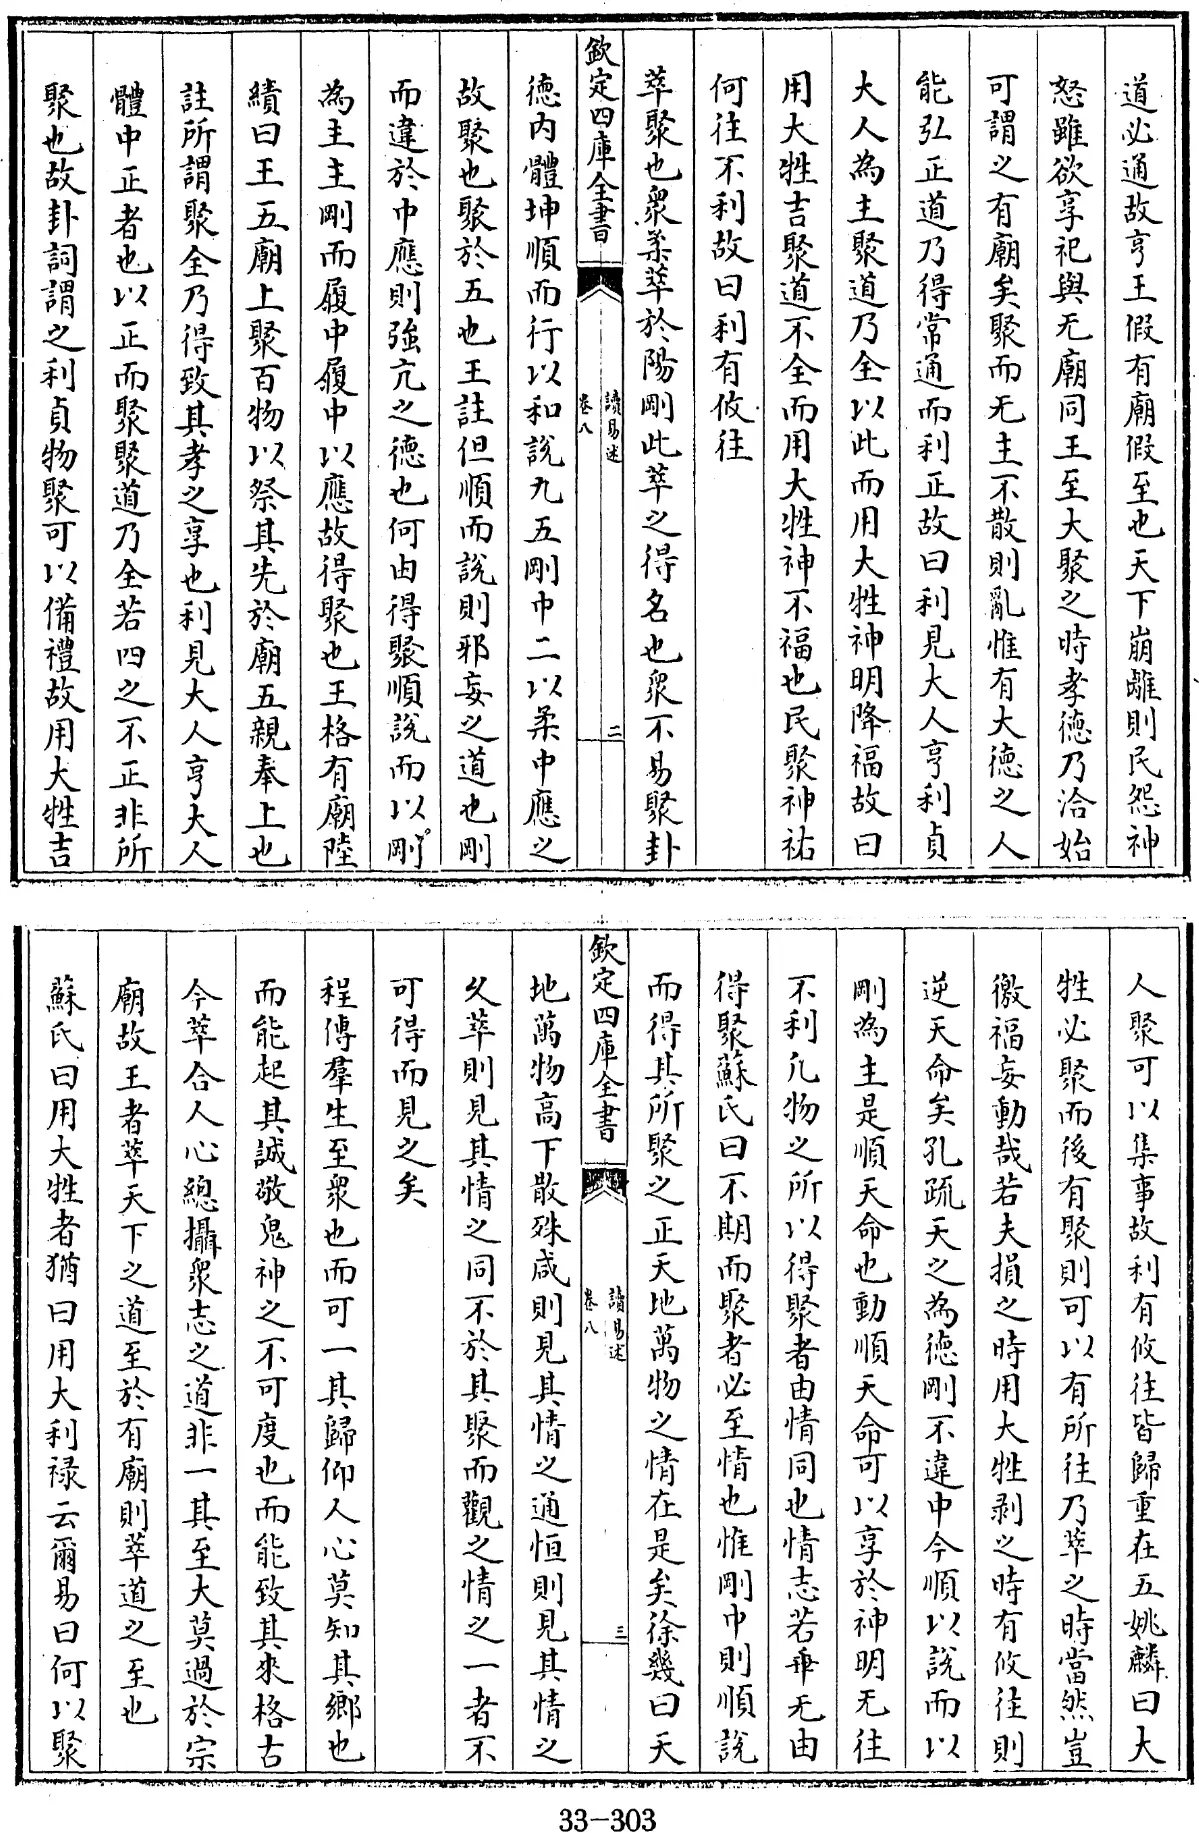 道必通故亨王假有廟假至也天下崩離則民怨神
怒雖欲享祀與无廟同王至大聚之時孝德乃洽始
可謂之有廟矣聚而无主不散則亂惟有大德之人
能弘正道乃得常通而利正故曰利見大人亨利貞
大人為主聚道乃全以此而用大牲神明降福故曰
用大牲吉聚道不全而用大牲神不福也民聚神祐
何往不利故曰利有攸往
萃聚也衆柔萃於陽剛此萃之得名也衆不易聚卦
欽定四庫全書
讀易述
卷八
二
德内體坤順而行以和說九五剛中二以柔中應之
故聚也聚於五也王註但順而說則邪妄之道也剛
而違於中應則強亢之德也何由得聚順說而以剛
為主主剛而履中履中以應故得聚也王格有廟陸
績曰王五廟上聚百物以祭其先於廟五親奉上也
註所謂聚全乃得致其孝之享也利見大人亨大人
體中正者也以正而聚聚道乃全若四之不正非所
聚也故卦詞謂之利貞物聚可以備禮故用大牲吉
人聚可以集事故利有攸往皆歸重在五姚麟曰大
牲必聚而後有聚則可以有所往乃萃之時當然豈
徼福妄動哉若夫損之時用大牲剥之時有攸往則
逆天命矣孔疏天之為德剛不違中今順以說而以
剛為主是順天命也動順天命可以享於神明无往
不利凡物之所以得聚者由情同也情志若乖无由
得聚蘇氏曰不期而聚者必至情也惟剛中則順說
而得其所聚之正天地萬物之情在是矣徐幾曰天
欽定四庫全書
讀易述
卷八
三
地萬物高下散殊咸則見其情之通恒則見其情之
久萃則見其情之同不於其聚而觀之情之一者不
可得而見之矣
程傳羣生至衆也而可一其歸仰人心莫知其鄉也
而能起其誠敬鬼神之不可度也而能致其來格古
今萃合人心總攝衆志之道非一其至大莫過於宗
廟故王者萃天下之道至於有廟則萃道之至也
蘇氏曰用大牲者猶曰用大利禄云爾易曰何以聚
33-303